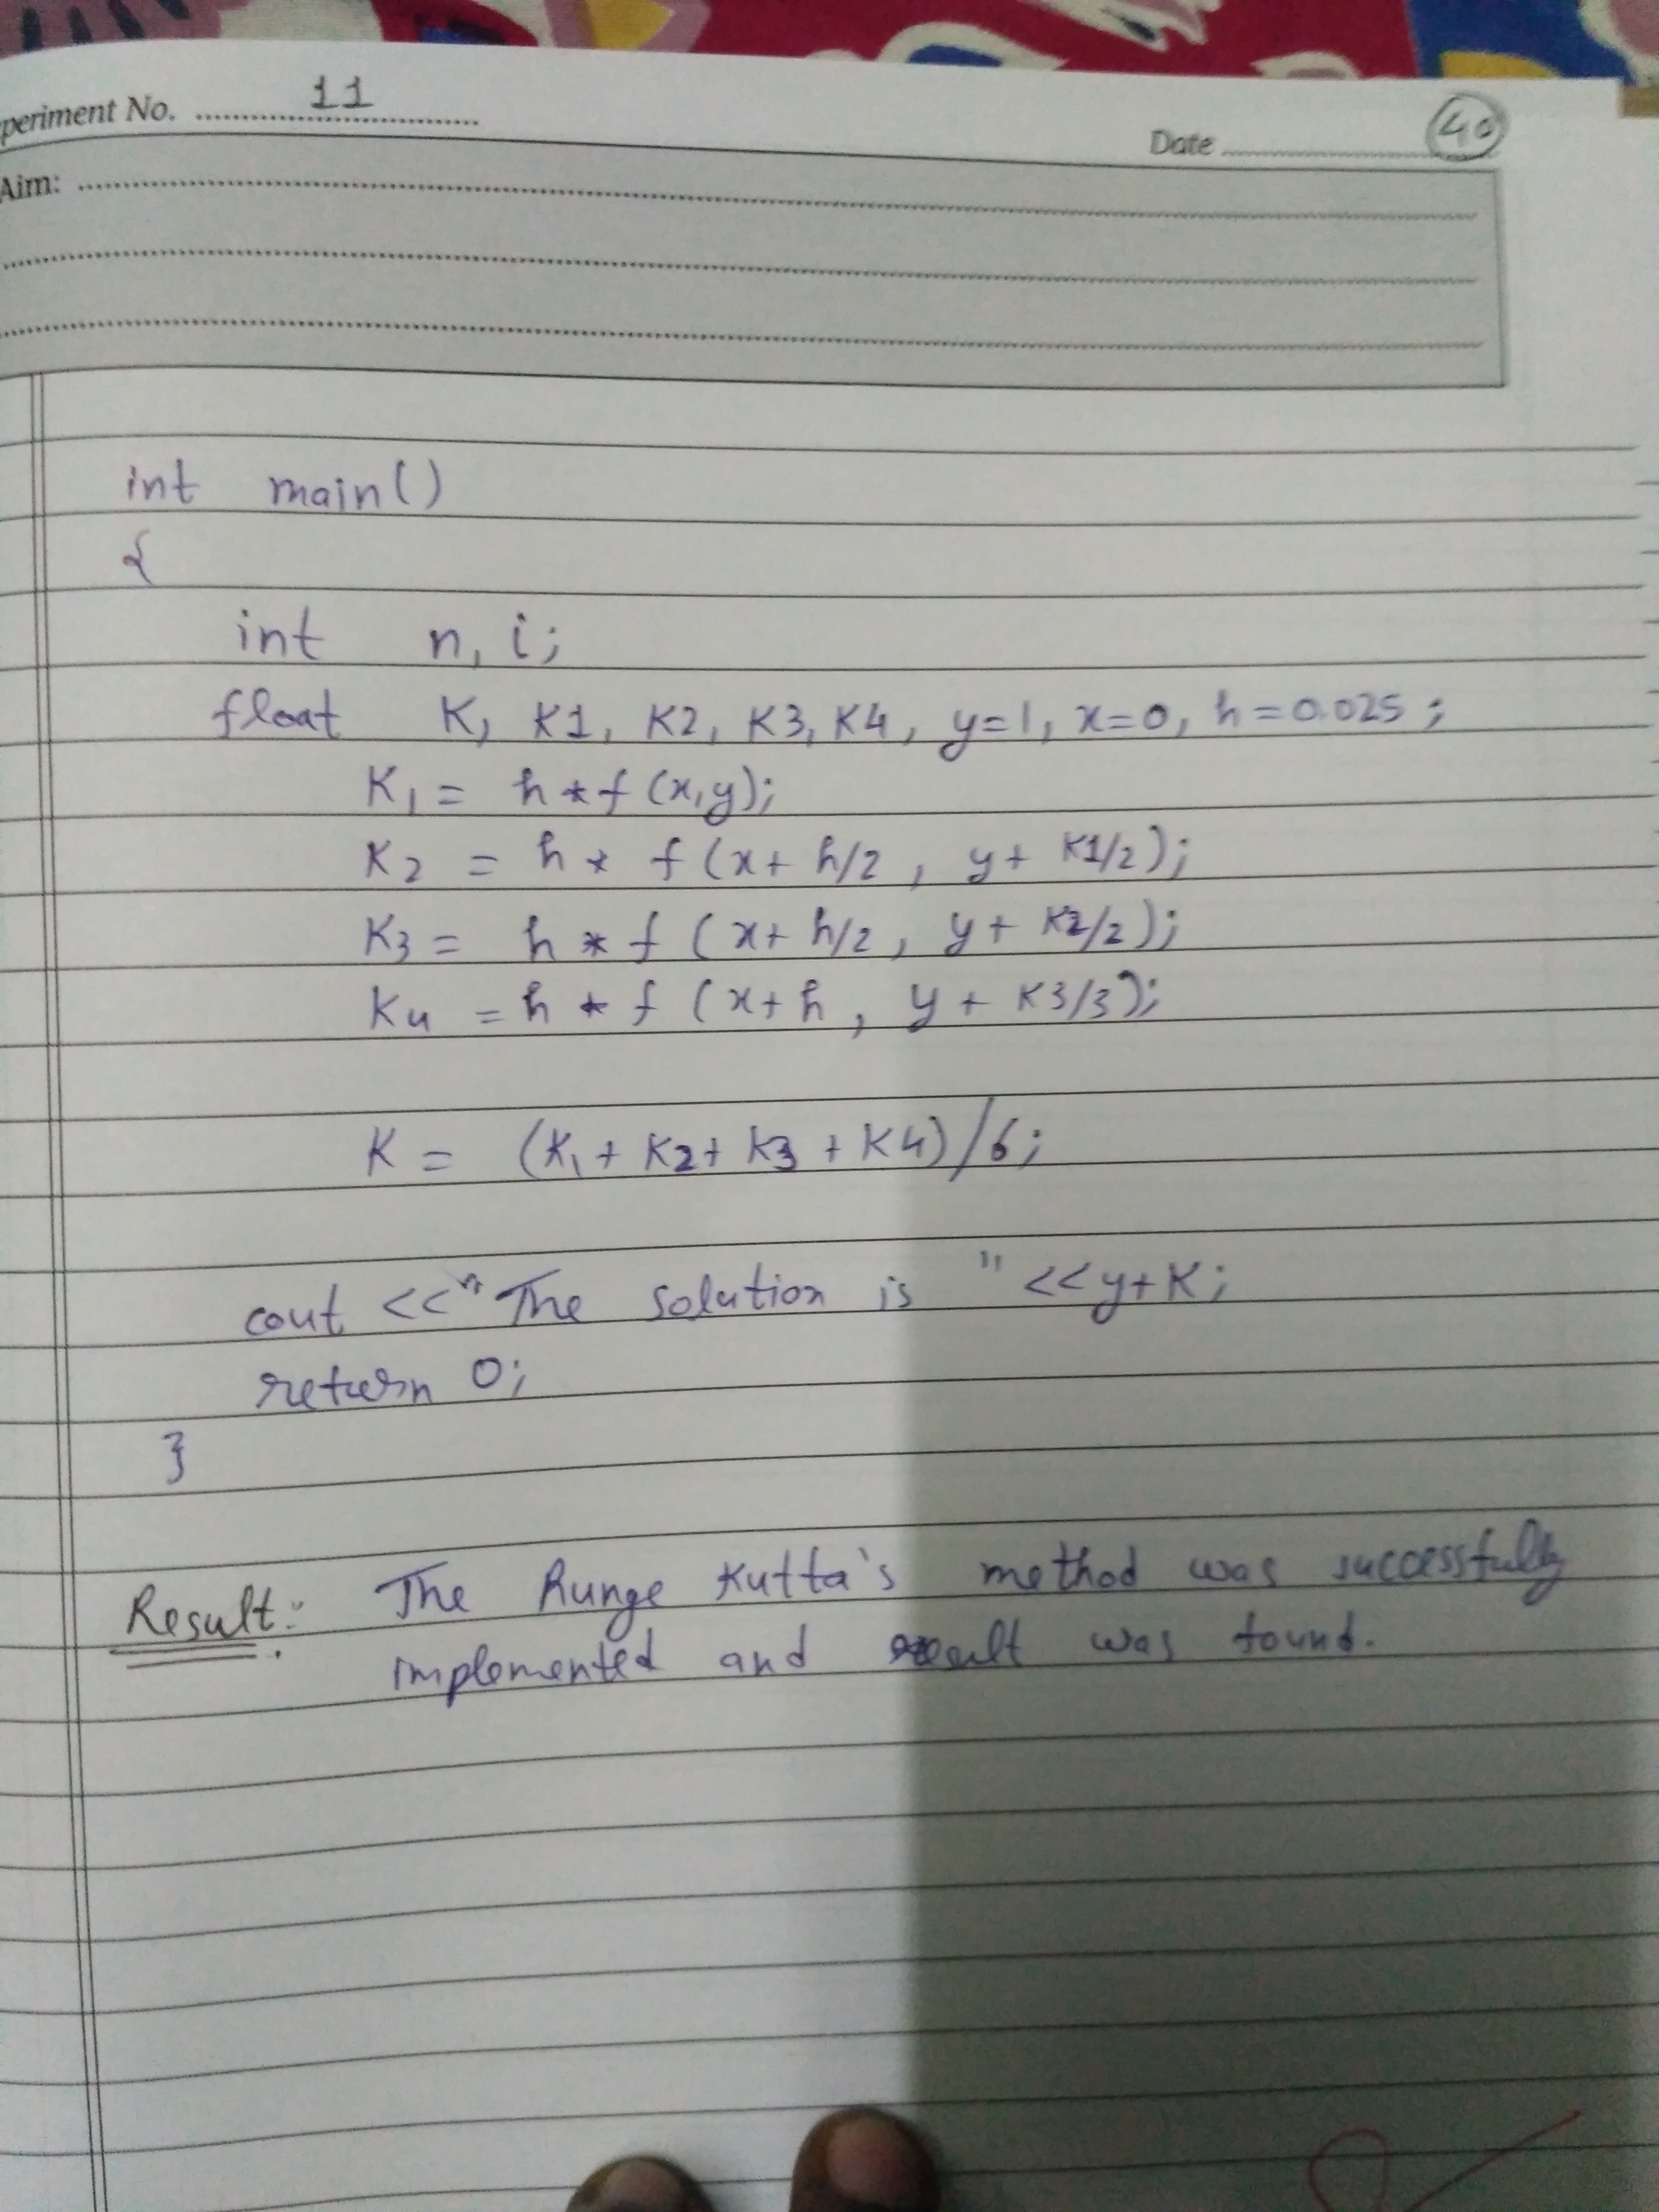 periment No. 11
Date 40
Aim:
int main()
{
int n, i;
float K, K1, K2, K3, K4, y=1, x=0, h=0.025;
K1 = h*f(x,y);
K2 = h* f(x+h/2, y+ K1/2);
K3 = h * f (x+h/2, y+ K2/2);
K4 = h * f (x+h, y + K3/3);
K = (K1+K2+K3+K4)/6;
cout <<"The solution is "<<y+K;
return 0;
}
Result:- The Runge Kutta's method was successfully
implemented and result was found.